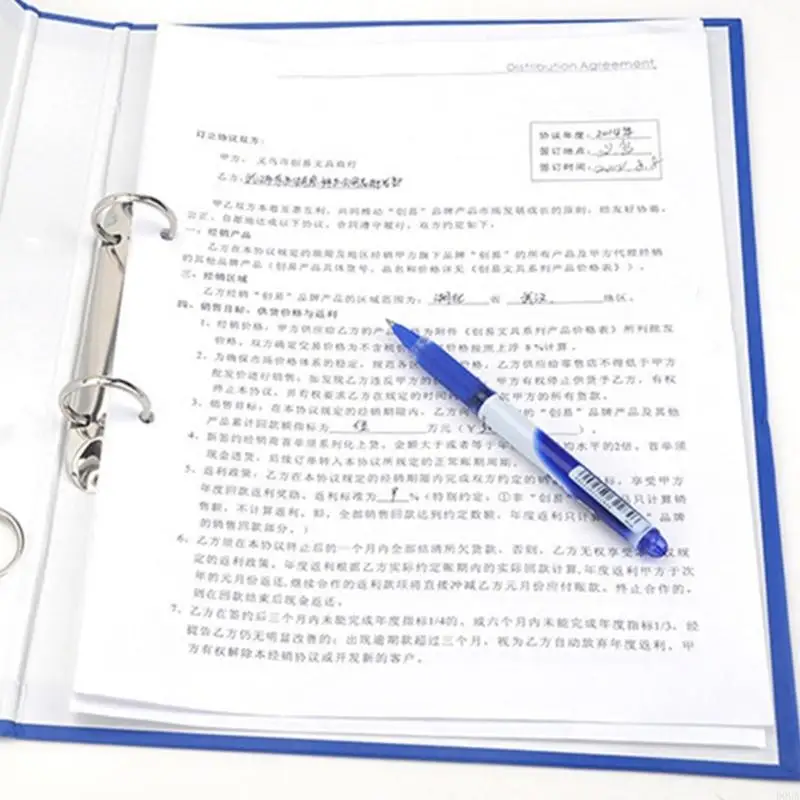 Distribution Agreement
订立协议双方：
甲方：义乌市创易文具商行
乙方：
协议年度：2014年
签订地点：义乌
签订时间：
甲乙双方本着互惠互利，共同推动“创易”品牌产品市场发展成长的原则，经友好协商，
公正、自愿地达成以下协议，合同遵守履行，双方约定如下：
一、经销产品
乙方在本协议规定的期限及地区经销甲方旗下品牌“创易”的所有产品及甲方代理经销
的其他品牌产品（创易产品具体货号、品名和价格详见《创易文具系列产品价格表》）。
三、经销区域
乙方经销“创易”品牌产品的区域范围为：湖北 省 武汉 地区。
四、销售目标、供货价格与返利
1、经销价格，甲方供应给乙方的产品 价为附件《创易文具系列产品价格表》所列批发
价格，双方确定交易价格为不含税价 价格按照上浮 8%计算。
2、为确保市场价格体系的稳定，规范各区 价格，乙方供应给零售店不得低于甲方
批发价进行销售，如发现乙方违反甲方的 甲方有权停止供货予乙方，有权
终止本协议，并有权要求乙方在规定的时间内 方的所有货款。
3、销售目标，在本协议规定的经销期限内，乙方向 的“创易”品牌产品及其他
产品累计回款额指标为 万元（￥
4、新签约经销商首单须系列化上货，金额大于或者等于年 均水平的2倍，首单须
现金进货，后续订单转入本协议所规定的正常账期周期。
5、返利政策，乙方在本协议规定的经销期限内完成双方约定的销 标，享受甲方
年度回款返利奖励，返利标准为 %（特别约定，①非“创易” 品只计算销
售额，不计算返利，即，全部销售回款达到约定数额，年度返利只计算 ”品牌
的销售回款部分。）
6、乙方须在本协议终止后的一个月内全部结清所欠货款，否则，乙方无权享受本协议规
定的返利政策。年度返利根据乙方实际约定账期内的实际回款计算，年度返利甲方于次
年的元月份返还，继续合作的返利款项将直接冲减乙方元月份应付账款，终止合作的，
则在回款结束后现金返还。
7、乙方在签约后三个月内未能完成年度指标1/4的，或六个月内未能完成年度指标1/3，经
提告乙方仍无明显改善的；出现逾期款超过三个月，视为乙方自动放弃年度返利，甲
方有权解除本经销协议或开发新的客户。